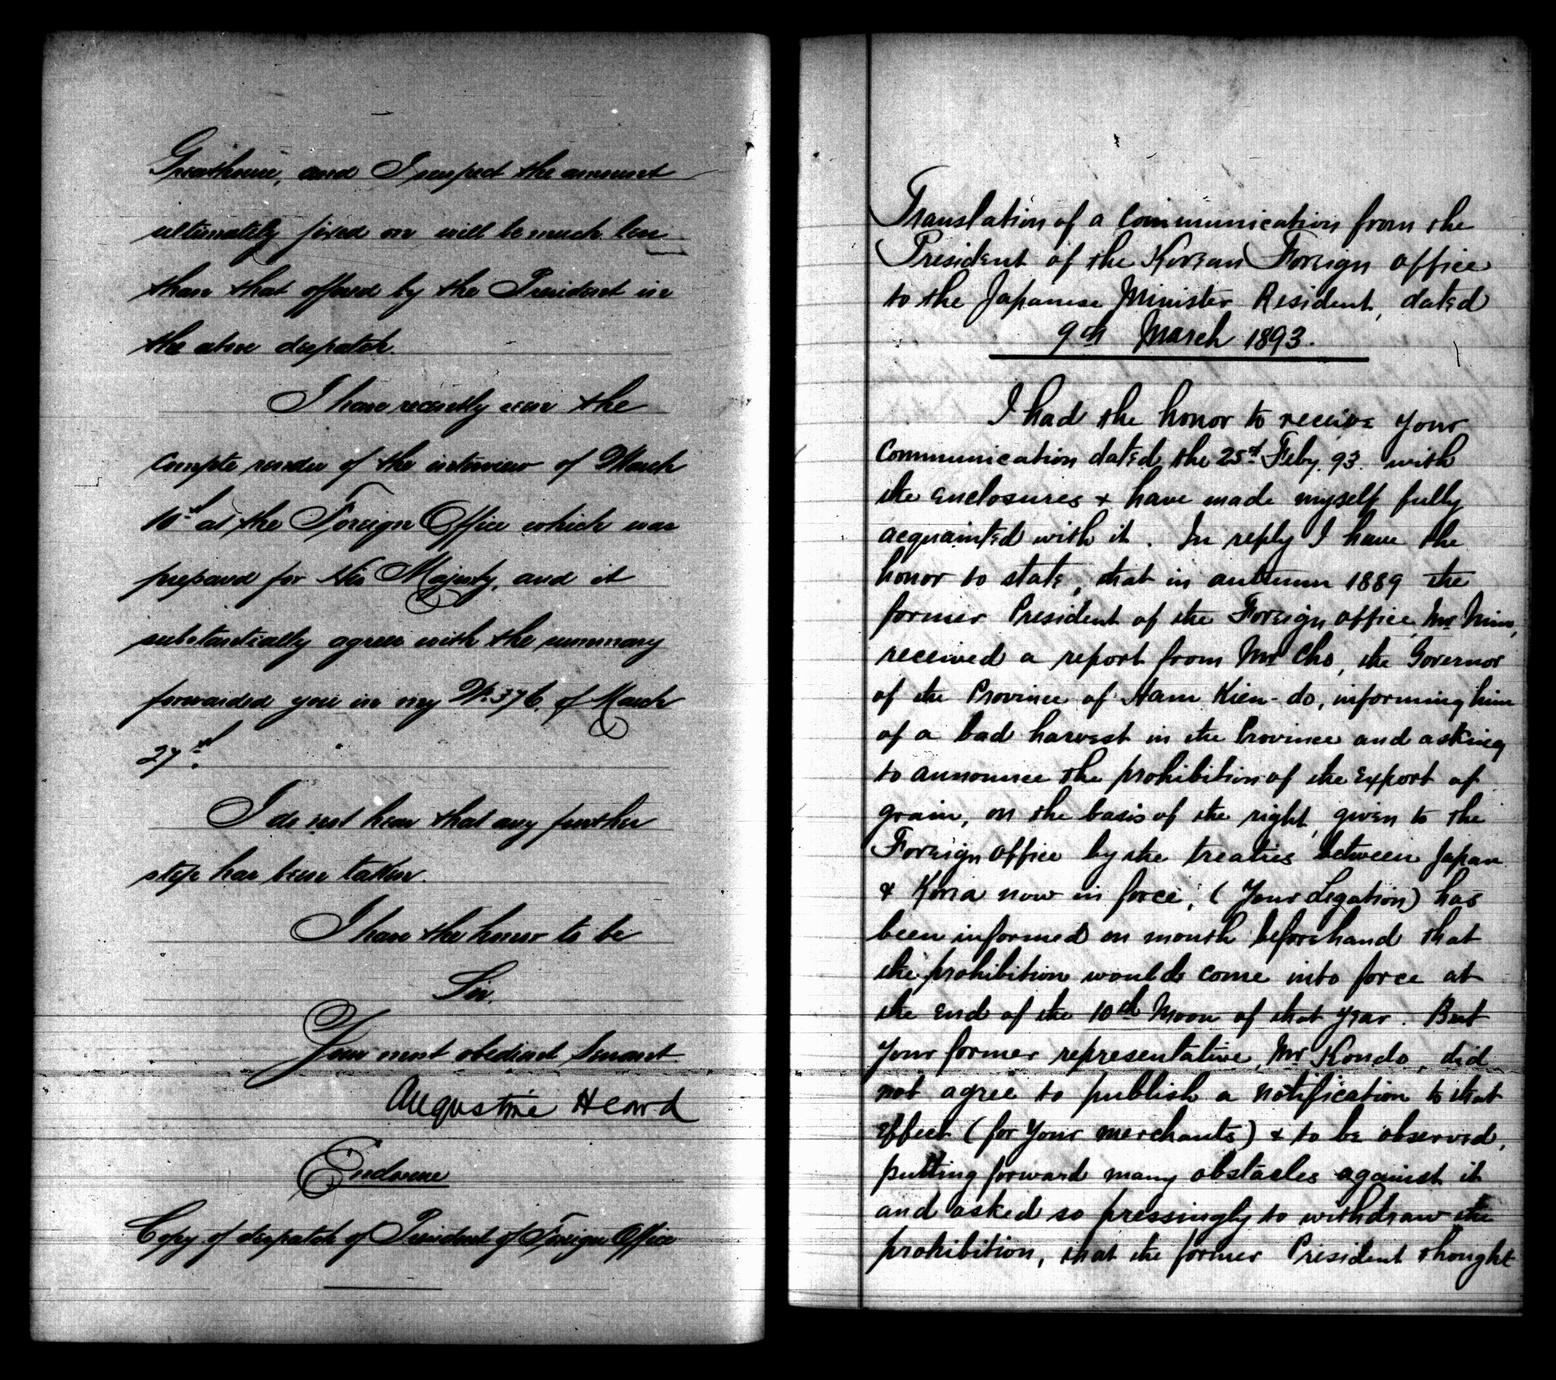 Greathouse, and I suspect the amount
ultimately fixed on will be much less
than that offered by the President in
the above despatch.
I have recently seen the
compte rendu of the interview of March
10th at the Foreign Office which was
prepared for His Majesty, and it
substantially agrees with the summary
forwarded you in my No. 376. of March
27th.
I do not hear that any further
step has been taken.
I have the honor to be
Sir,
Your most obedient Servant
Augustine Heard
Enclosure
Copy of despatch of President of Foreign Office
Translation of a Communication from the
President of the Korean Foreign office
to the Japanese Minister Resident, dated
9th March 1893.
I had the honor to receive Your
Communication dated the 25th Feby. 93. with
the enclosures & have made myself fully
acquainted with it. In reply I have the
honor to state, that in autumn 1889 the
former President of the Foreign office, Mr Min,
received a report from Mr Cho, the Governor
of the Province of Ham Kien-do, informing him
of a bad harvest in the Province and asking
to announce the prohibition of the export of
grain, on the basis of the right, given to the
Foreign office by the treaties between Japan
& Korea now in force; (Your Legation) has
been informed on month beforehand that
the prohibition would come into force at
the end of the 10th Moon of that year. But
Your former representative, Mr Kondo, did
not agree to publish a notification to that
effect (for Your merchants) & to be observed,
putting forward many obstacles against it
and asked so pressingly to withdraw the
prohibition, that the former President thought